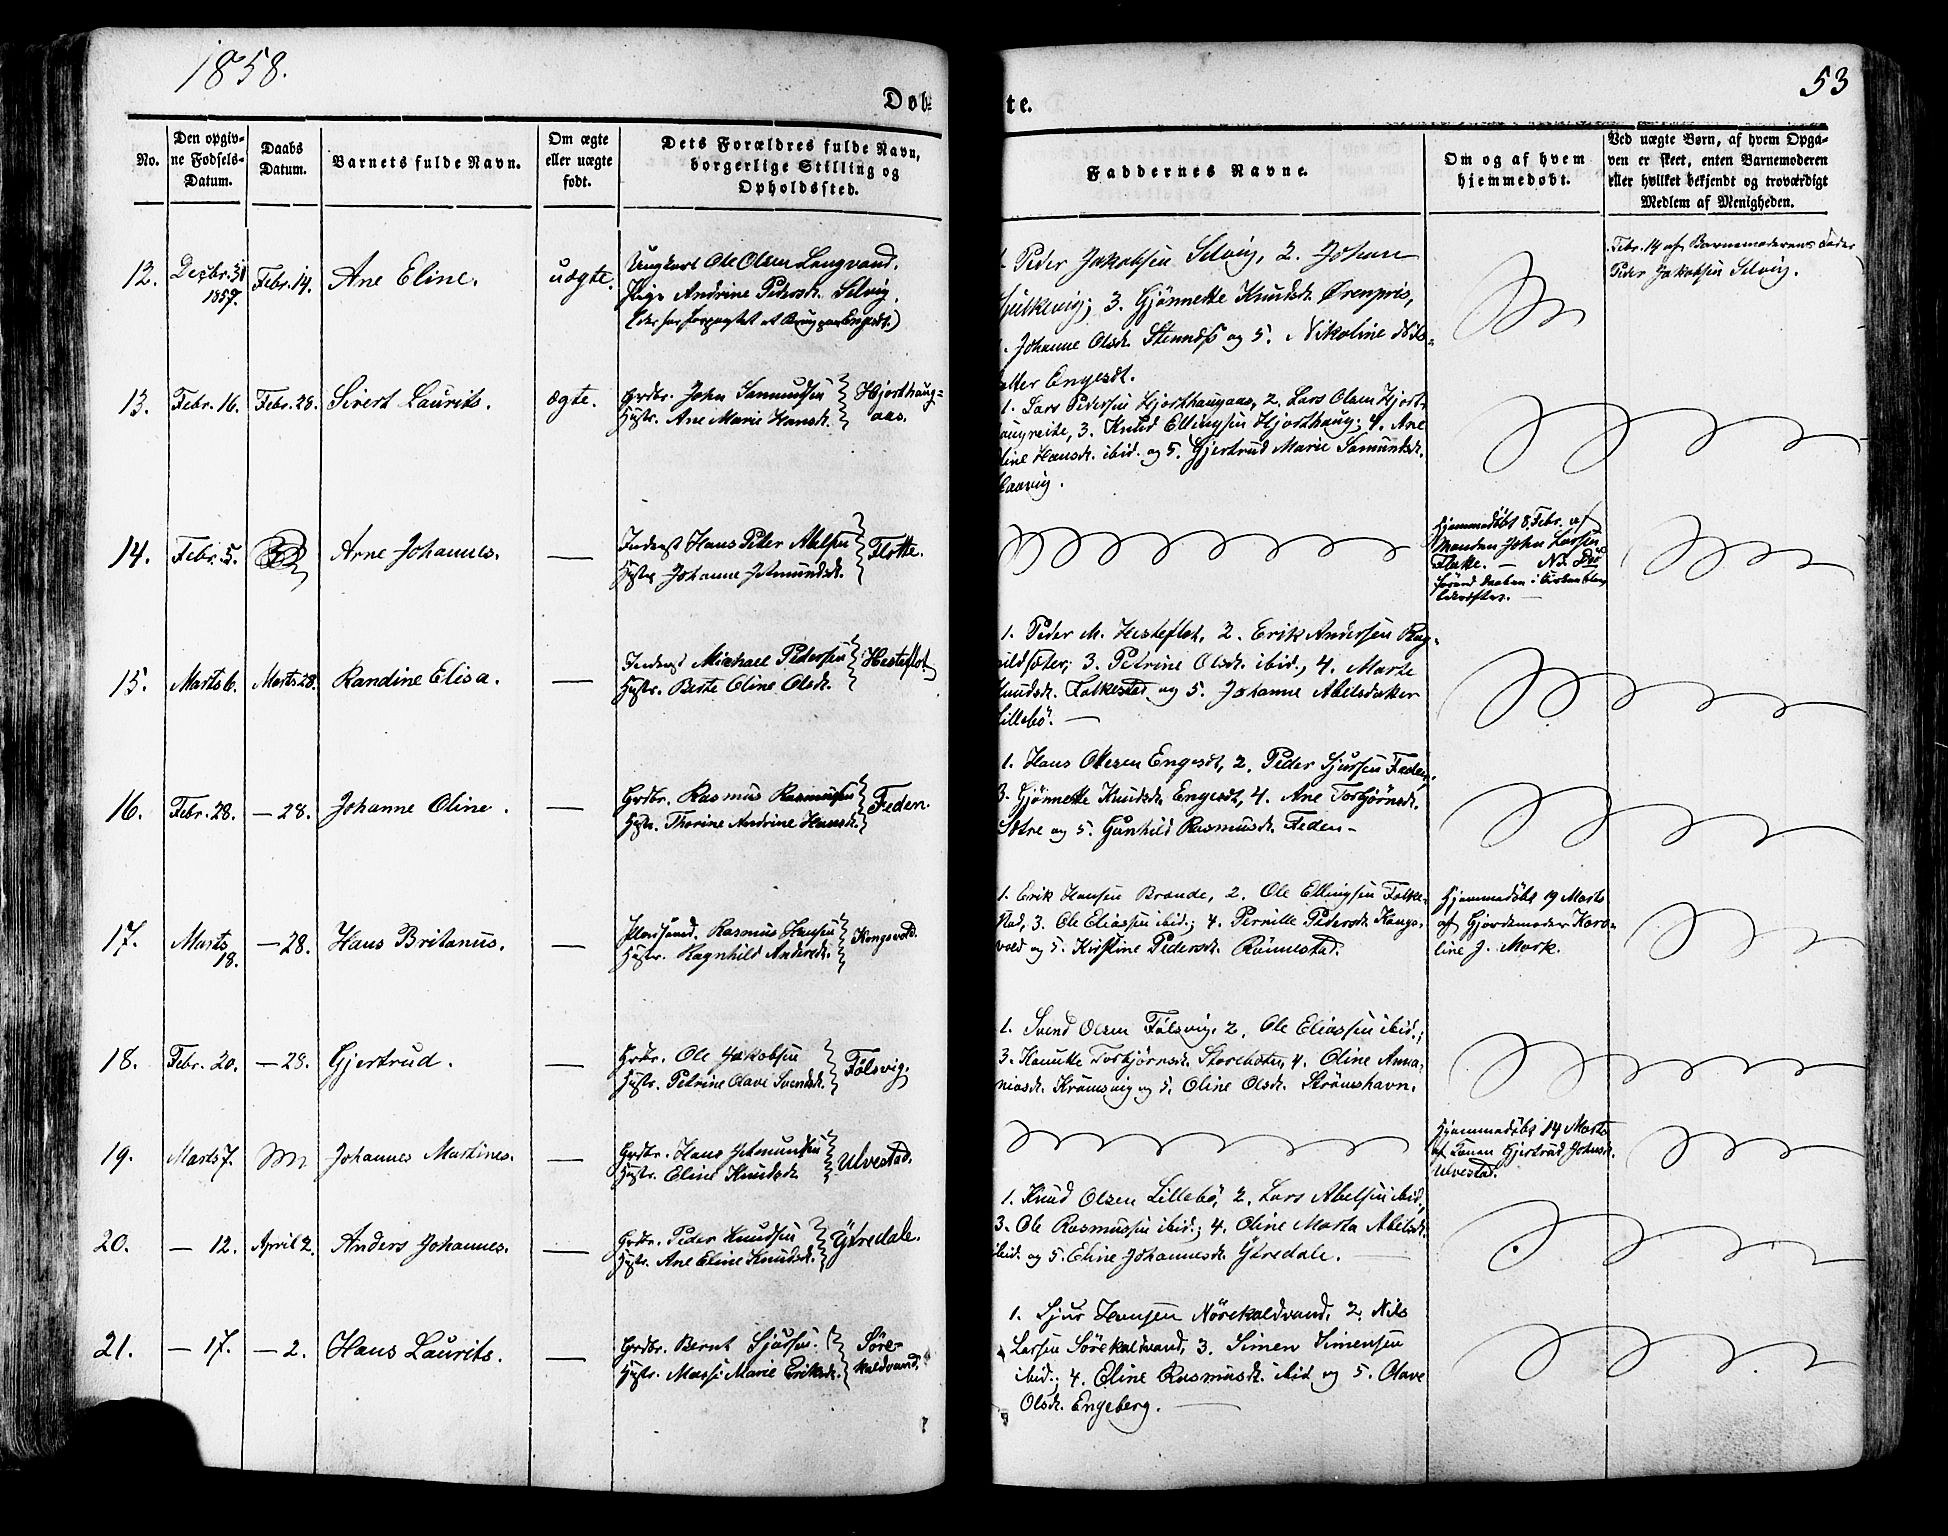 1858.
Døb
te.
53
No.
Den opgiv-
ne Fødsels-
Datum.
Daabs
Datum.
Barnets fulde Navn.
Om ægte
eller uægte
født.
Dets Forældres fulde Navn,
borgerlige Stilling og
Opholdssted.
Faddernes Navne.
Om og af hvem
hjemmedøbt.
Ved uægte Børn, af hvem Opga-
ven er skeet, enten Barnemoderen
eller hvilket bekjendt og troværdigt
Medlem af Menigheden.
12. Decbr. 31 1857. Febr. 14. Ane Eline. uægte.
Ungkarl Ole Olsen Langvand.
Pige Andrine Pedersdt. Selvig.
1. Peder Jakobsen Selvig, 2. Johan
3. Gjønnette Knudsdt. Ørenpris,
Johanne Olsdt. og 5. Nikoline Nils-
datter Engesdt.
Febr. 14 af Barnemoderens Fader
Peder Jakobsen Selvig.
13. Febr. 16. Febr. 28. Sivert Laurits. ægte.
Grdbr. John Samundsen
Hustr. Ane Marie Hansdt.
Hjorthaug=
aas.
1. Lars Pedersen Hjorthaugaas, 2. Lars Olsen Hjort-
haugreite, 3. Knud Ellingsen Hjorthaug; 4. Ane
Oline Hansdt. ibid. og 5. Gjertrud Marie Samundsdt.
14. Febr. 5. Arne Johannes. —
Inderst Hans Peter Abelsen
Hustr. Johanne Jetmundsdt.
Fløtte.
Hjemmedøbt 8. Febr. af
Manden John Larsen
Fløtte. —
15. Marts 6. Marts 28. Randine Elisa. —
Inderst Michael Pedersen
Hustr. Berte Oline Olsdt.
Hesteflot
1. Peder M. Hesteflot, 2. Erik Andersen Rag-
nildsæter; 3. Petrine Olsdt. ibid., 4. Marte
Knudsdt. Folkestad og 5. Johanne Abelsdatter
Lillebø. —
16. Febr. 28. — 28. Johanne Oline. —
Grdbr. Rasmus Rasmussen
Hustr. Thorine Andrine Hansdt.
Feden.
1. Hans Olesen Engesdt, 2. Peder Sjursen Feden,
3. Gjønnette Knudsdt. Engesdt, 4. Ane Torbjørnsdt.
Sætre og 5. Gunhild Rasmusdt. Feden —
17. Marts 18. — 28. Hans Britanus. —
Pladsmd. Rasmus Hansen
Hustr. Ragnhild Andersdt.
Kongsvold.
1. Erik Hansen Brande, 2. Ole Ellingsen Folke-
stad, 3. Ole Eliassen ibid.; 4. Pernille Pedersdt. Kongs-
vold og 5. Kirstine Pedersdt. Rønnestad.
Hjemmedøbt 19 Marts
af Gjordemoder Karo-
line J. Mork.
18. Febr. 20. — 28. Gjertrud. —
Grdbr. Ole Jakobsen
Hustr. Petrine Olave Svendsdt.
Følsvig.
1. Svend Olsen Følsvig, 2. Ole Eliassen ibid.;
3. Hanikke Torbjørnsdt. 4. Oline Anna-
niasdt. Kramsvig og 5. Oline Olsdt. Strømshavn.
19. Marts 7. Johannes Martines. —
Grdbr. Hans Jetmundsen
Hustr. Eline Knudsdt.
Ulvestad.
Hjemmedøbt 14 Marts
af Gjertrud Johnsdt.
Ulvestad.
20. — 12. April 2. Anders Johannes. —
Grdbr. Peder Knudsen
Hustr. Ane Eline Knudsdt.
Ytredale.
1. Knud Olsen Lillebø, 2. Lars Abelsen ibid,
3. Ole Rasmussen ibid.; 4. Oline Marta Abelsdt.
ibid. og 5. Eline Johannesdt. Ytredale.
21. — 17. — 2. Hans Laurits. —
Grdbr. Bernt Sjursen.
Hustr. Massi Marie Eriksdt.
Søre-
kaldvand.
1. Sjur Hansen Nørekaldvand, 2. Nils
Larsen Sørekaldvand, 3. Simen Simensen
ibid.; 4. Eline Rasmusdt. ibid og 5. Olave
Olsdt. Engeberg. —